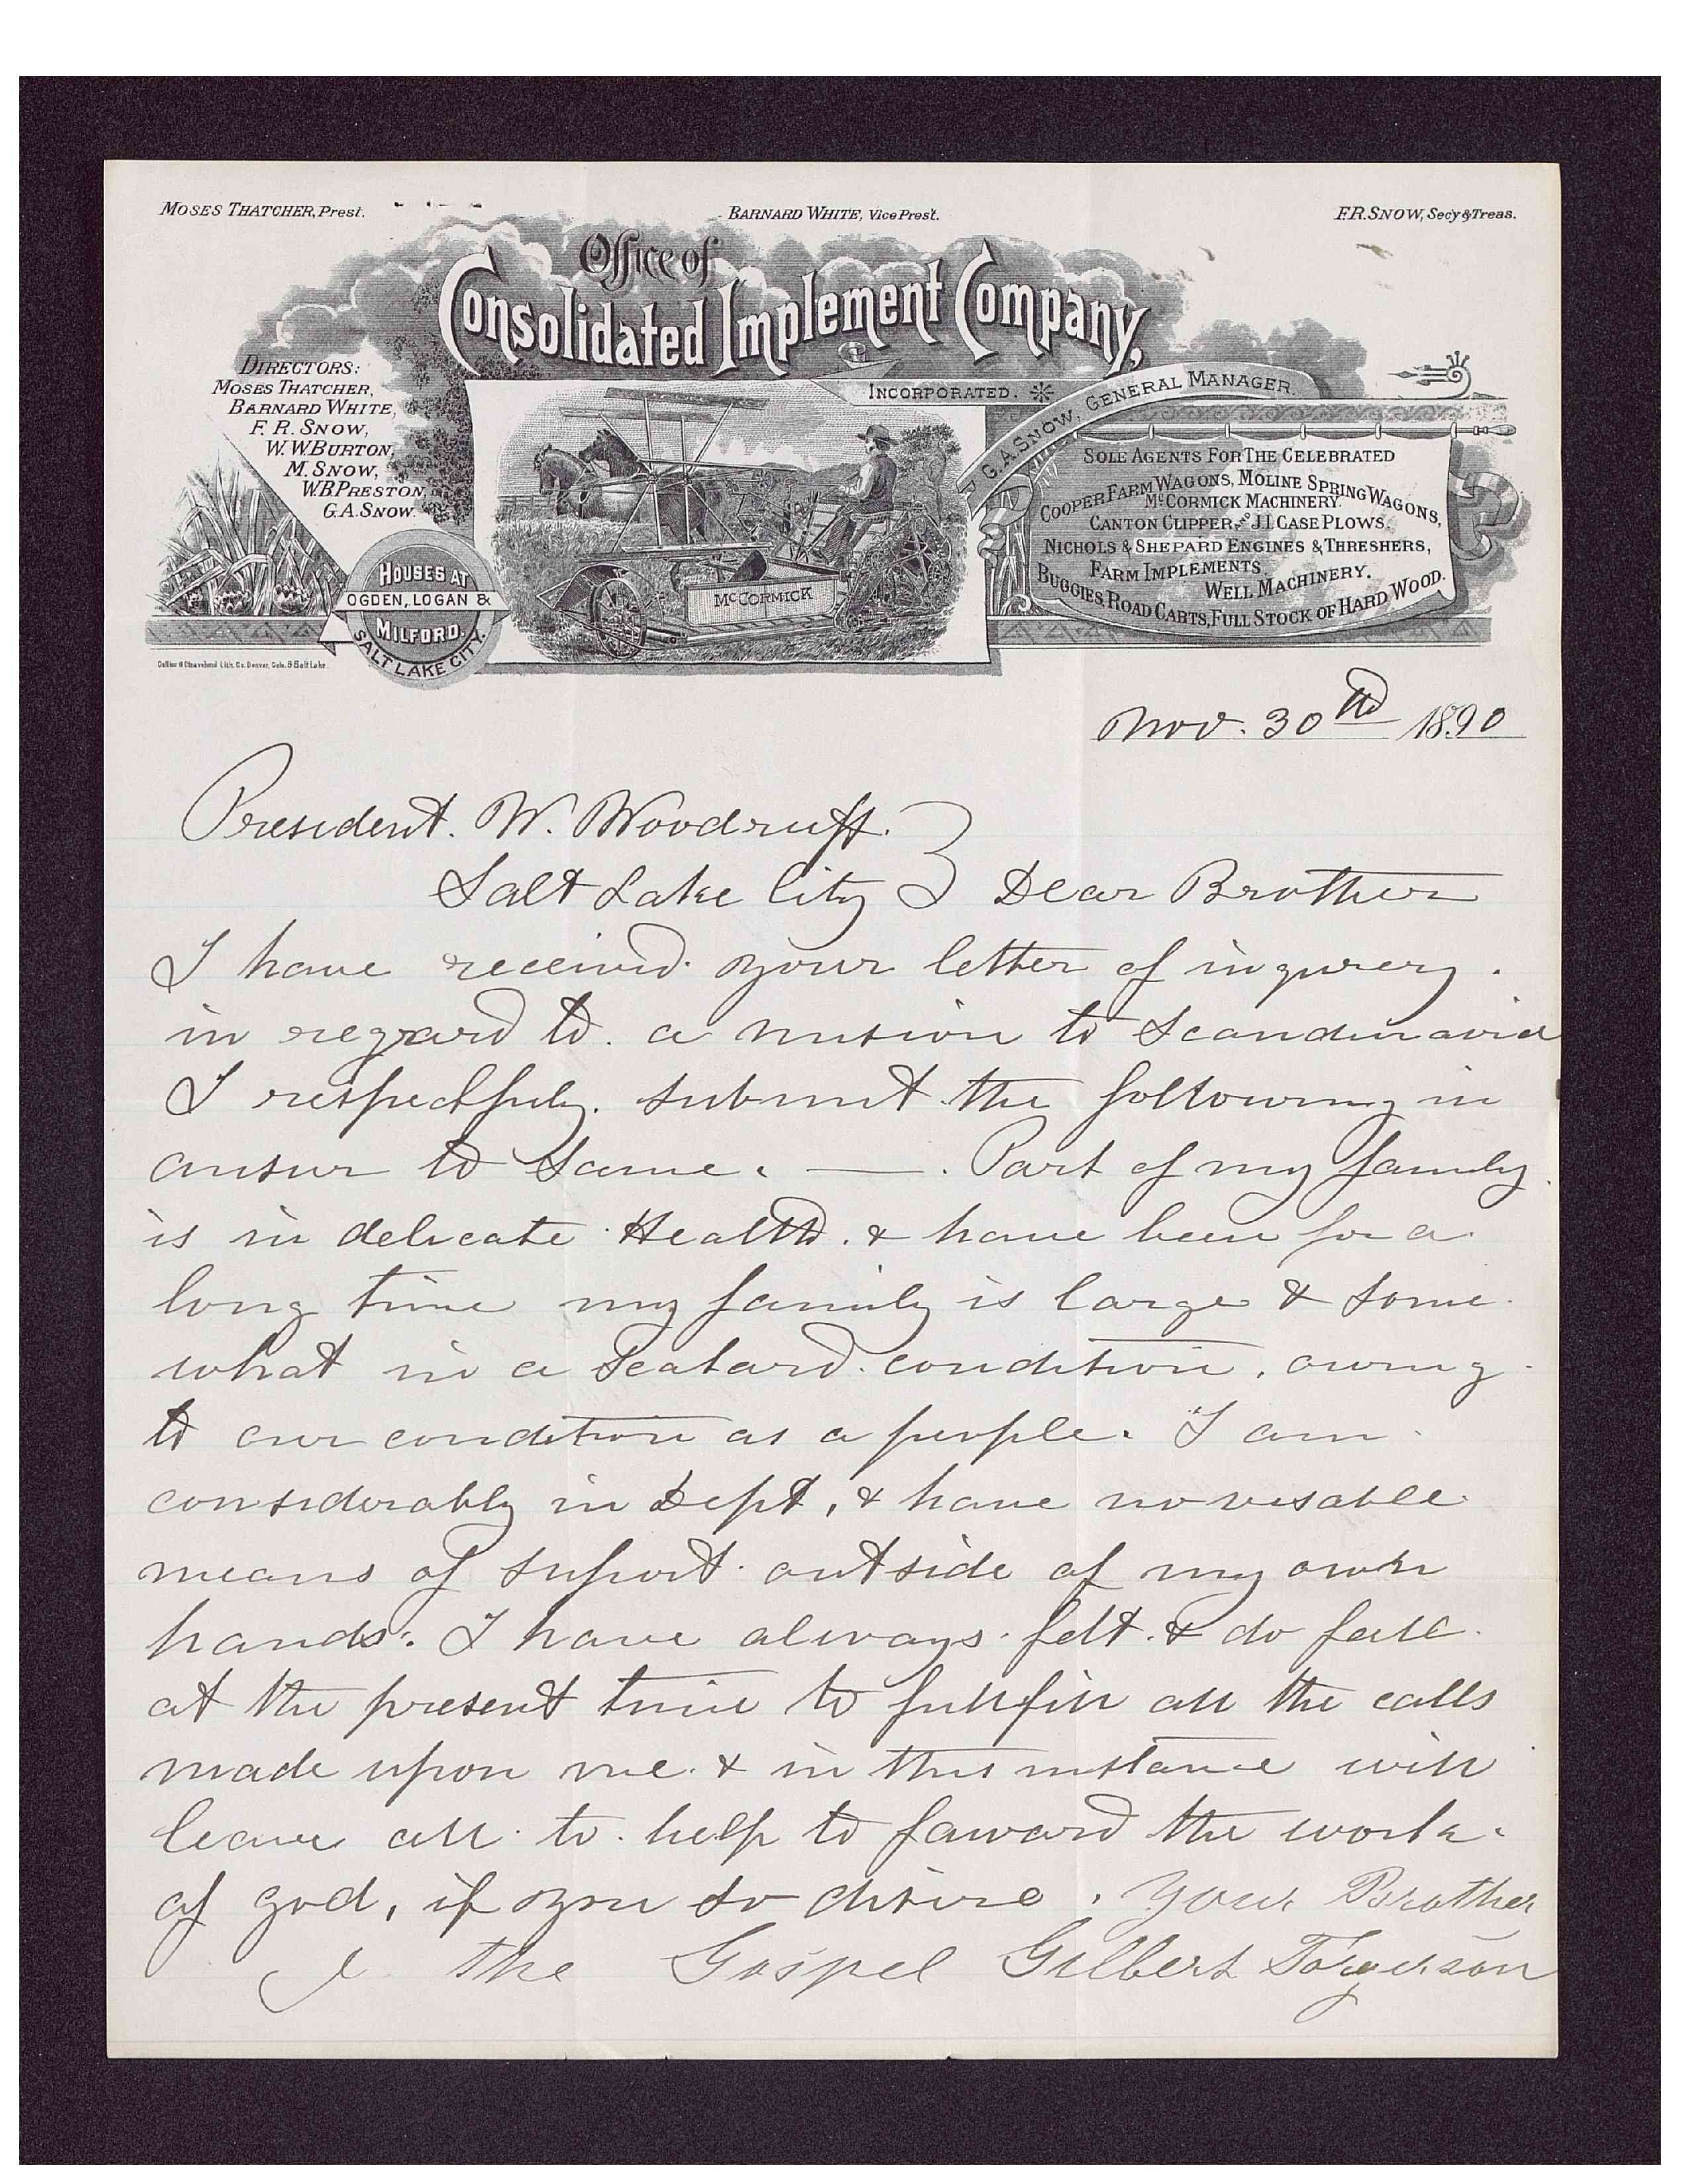 MOSES THATCHER, Prest.
BARNARD WHITE, Vice Prest.
F.R. SNOW, Secy & Treas.
Office of
Consolidated Implement Company,
INCORPORATED.
G.A. SNOW, GENERAL MANAGER.
DIRECTORS:
MOSES THATCHER,
BARNARD WHITE,
F. R. SNOW,
W. W. BURTON,
M. SNOW,
W.B. PRESTON,
G.A. SNOW.
HOUSES AT
OGDEN, LOGAN &
MILFORD.
SALT LAKE CITY.
McCORMICK
SOLE AGENTS FOR THE CELEBRATED
COOPER FARM WAGONS, MOLINE SPRING WAGONS,
McCORMICK MACHINERY.
CANTON CLIPPER AND J.I. CASE PLOWS.
NICHOLS & SHEPARD ENGINES & THRESHERS,
FARM IMPLEMENTS.
WELL MACHINERY.
BUGGIES, ROAD CARTS, FULL STOCK OF HARD WOOD.
Lith. Co. Denver, Colo. & Salt Lake.
Nov. 30th 1890
President. W. Woodruff.
Salt Lake City } Dear Brother
I have received your letter of inqurery.
in regard to. a mision to Scandinavia
I respectfuly. submit the following in
answr to same. —. Part of my family
is in delicate Health. & have been for a
long time my family is large & some
what in a Scatard condition, owing
to our condition as a people. I am
considerably in Dept, & have no visable
means of suport outside of my own
hands. I have always felt. & do feell
at the present time to fullfill all the calls
made upon me. & in this instance will
leave all to. help to faward the work.
of god, if you so desire. Your Brother
I the Gospel Gilbert Torgerson